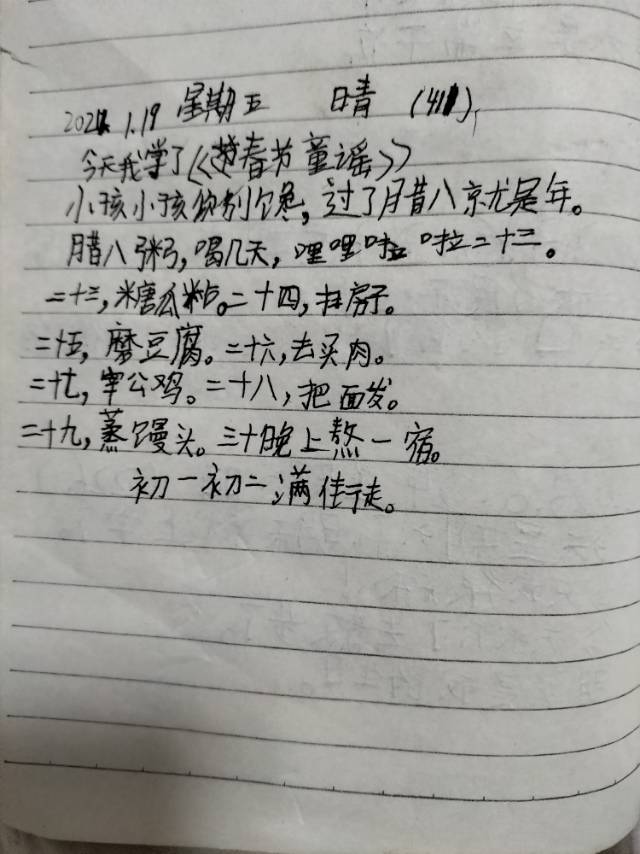 2024.1.19 星期五 晴 (411)
今天我学了《春节童谣》
小孩小孩你别馋，过了腊八就是年。
腊八粥，喝几天，哩哩啦啦二十三。
二十三，糖瓜粘。二十四，扫房子。
二十五，磨豆腐。二十六，去买肉。
二十七，宰公鸡。二十八，把面发。
二十九，蒸馒头。三十晚上熬一宿。
初一初二满街走。